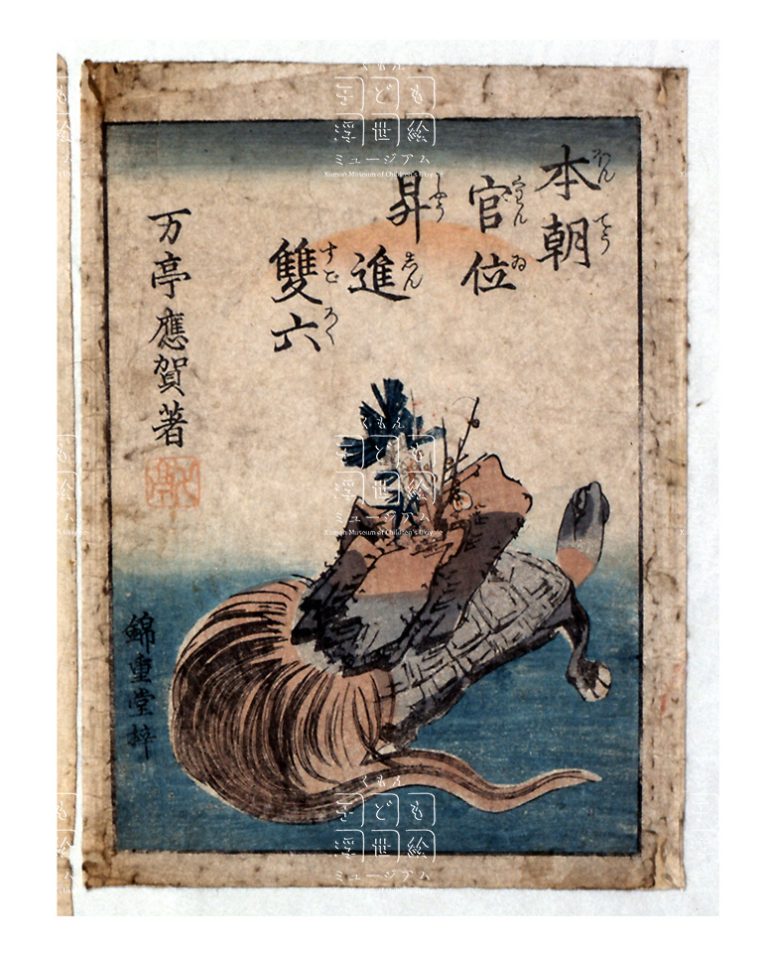 本朝
ほんてう
官位
くわんゐ
昇進
しやうしん
雙六
すごろく
万亭應賀著
錦重堂梓
くもん
子ども
浮世絵
ミュージアム
Kumon Museum of Children's Ukiyo-e
くもん
子ども
浮世絵
ミュージアム
Kumon Museum of Children's Ukiyo-e
くもん
子ども
浮世絵
ミュージアム